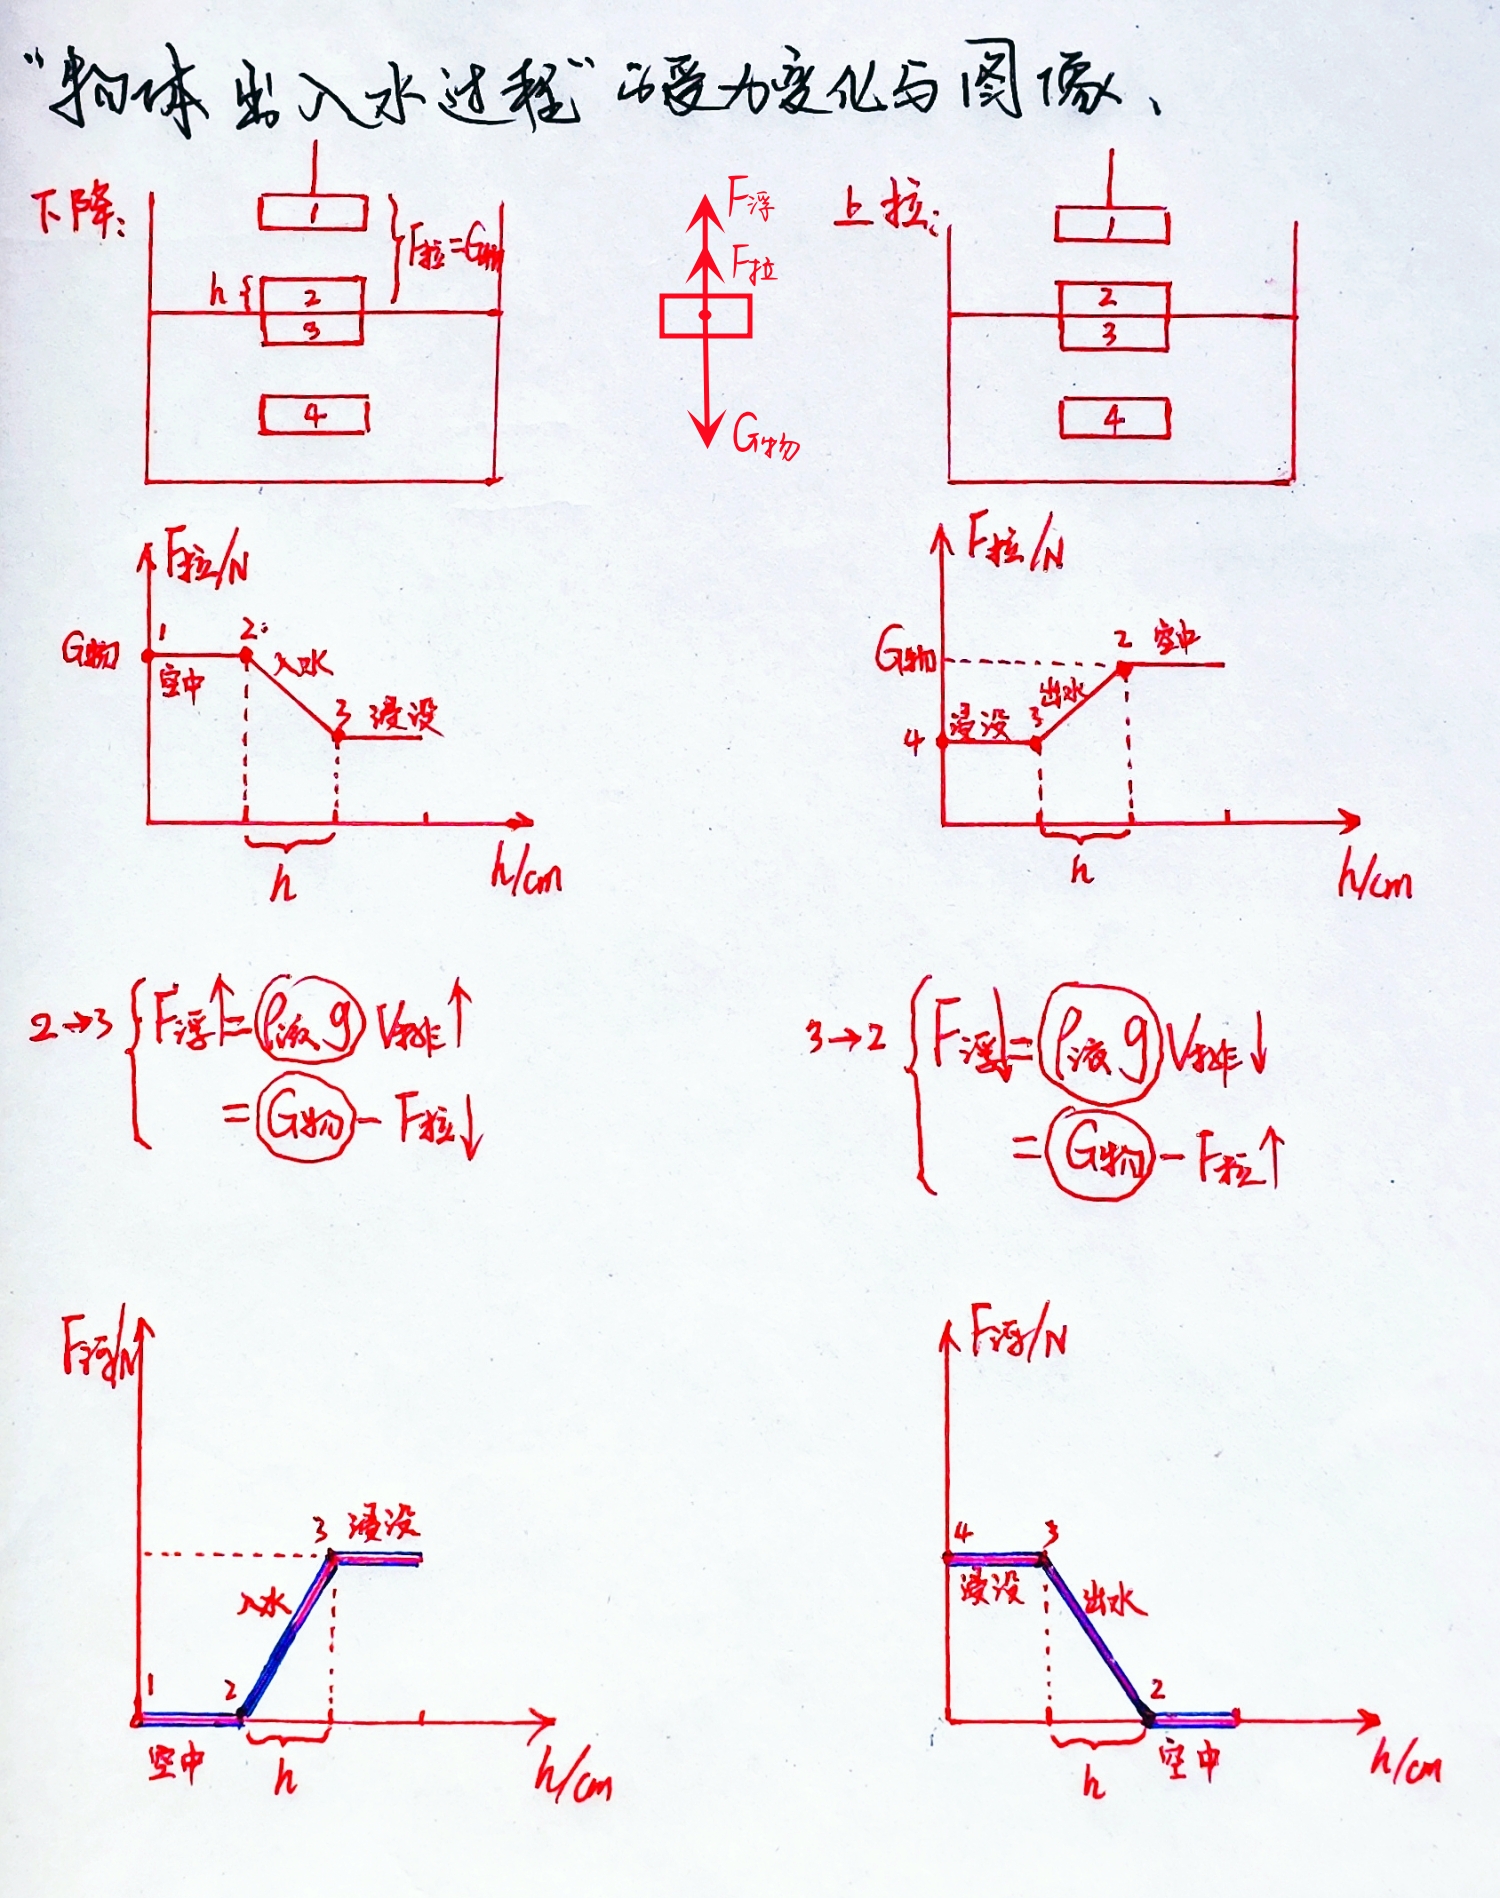 “物体出入水过程”的受力变化与图像、
下降:
1
F拉=G物
h
2
3
4
F浮
F拉
G物
上拉:
1
2
3
4
F拉/N
G物
1
2
空中
入水
3
浸没
h
h/cm
F拉/N
G物
4
浸没
3
出水
2
空中
h
h/cm
2→3
F浮↑=ρ液gV排↑
=G物-F拉↓
3→2
F浮↓=ρ液gV排↓
=G物-F拉↑
F浮/N
1
2
空中
入水
3
浸没
h
h/cm
F浮/N
4
3
浸没
出水
2
空中
h
h/cm